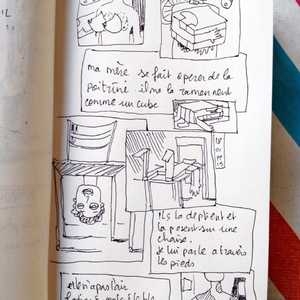 ma mère se fait operer de la
poitrine ils me la ramennent
comme un cube
ils la deplient et
la posent sur une
chaise.
je lui parle a travers
les pieds
elle n'a pas l'air